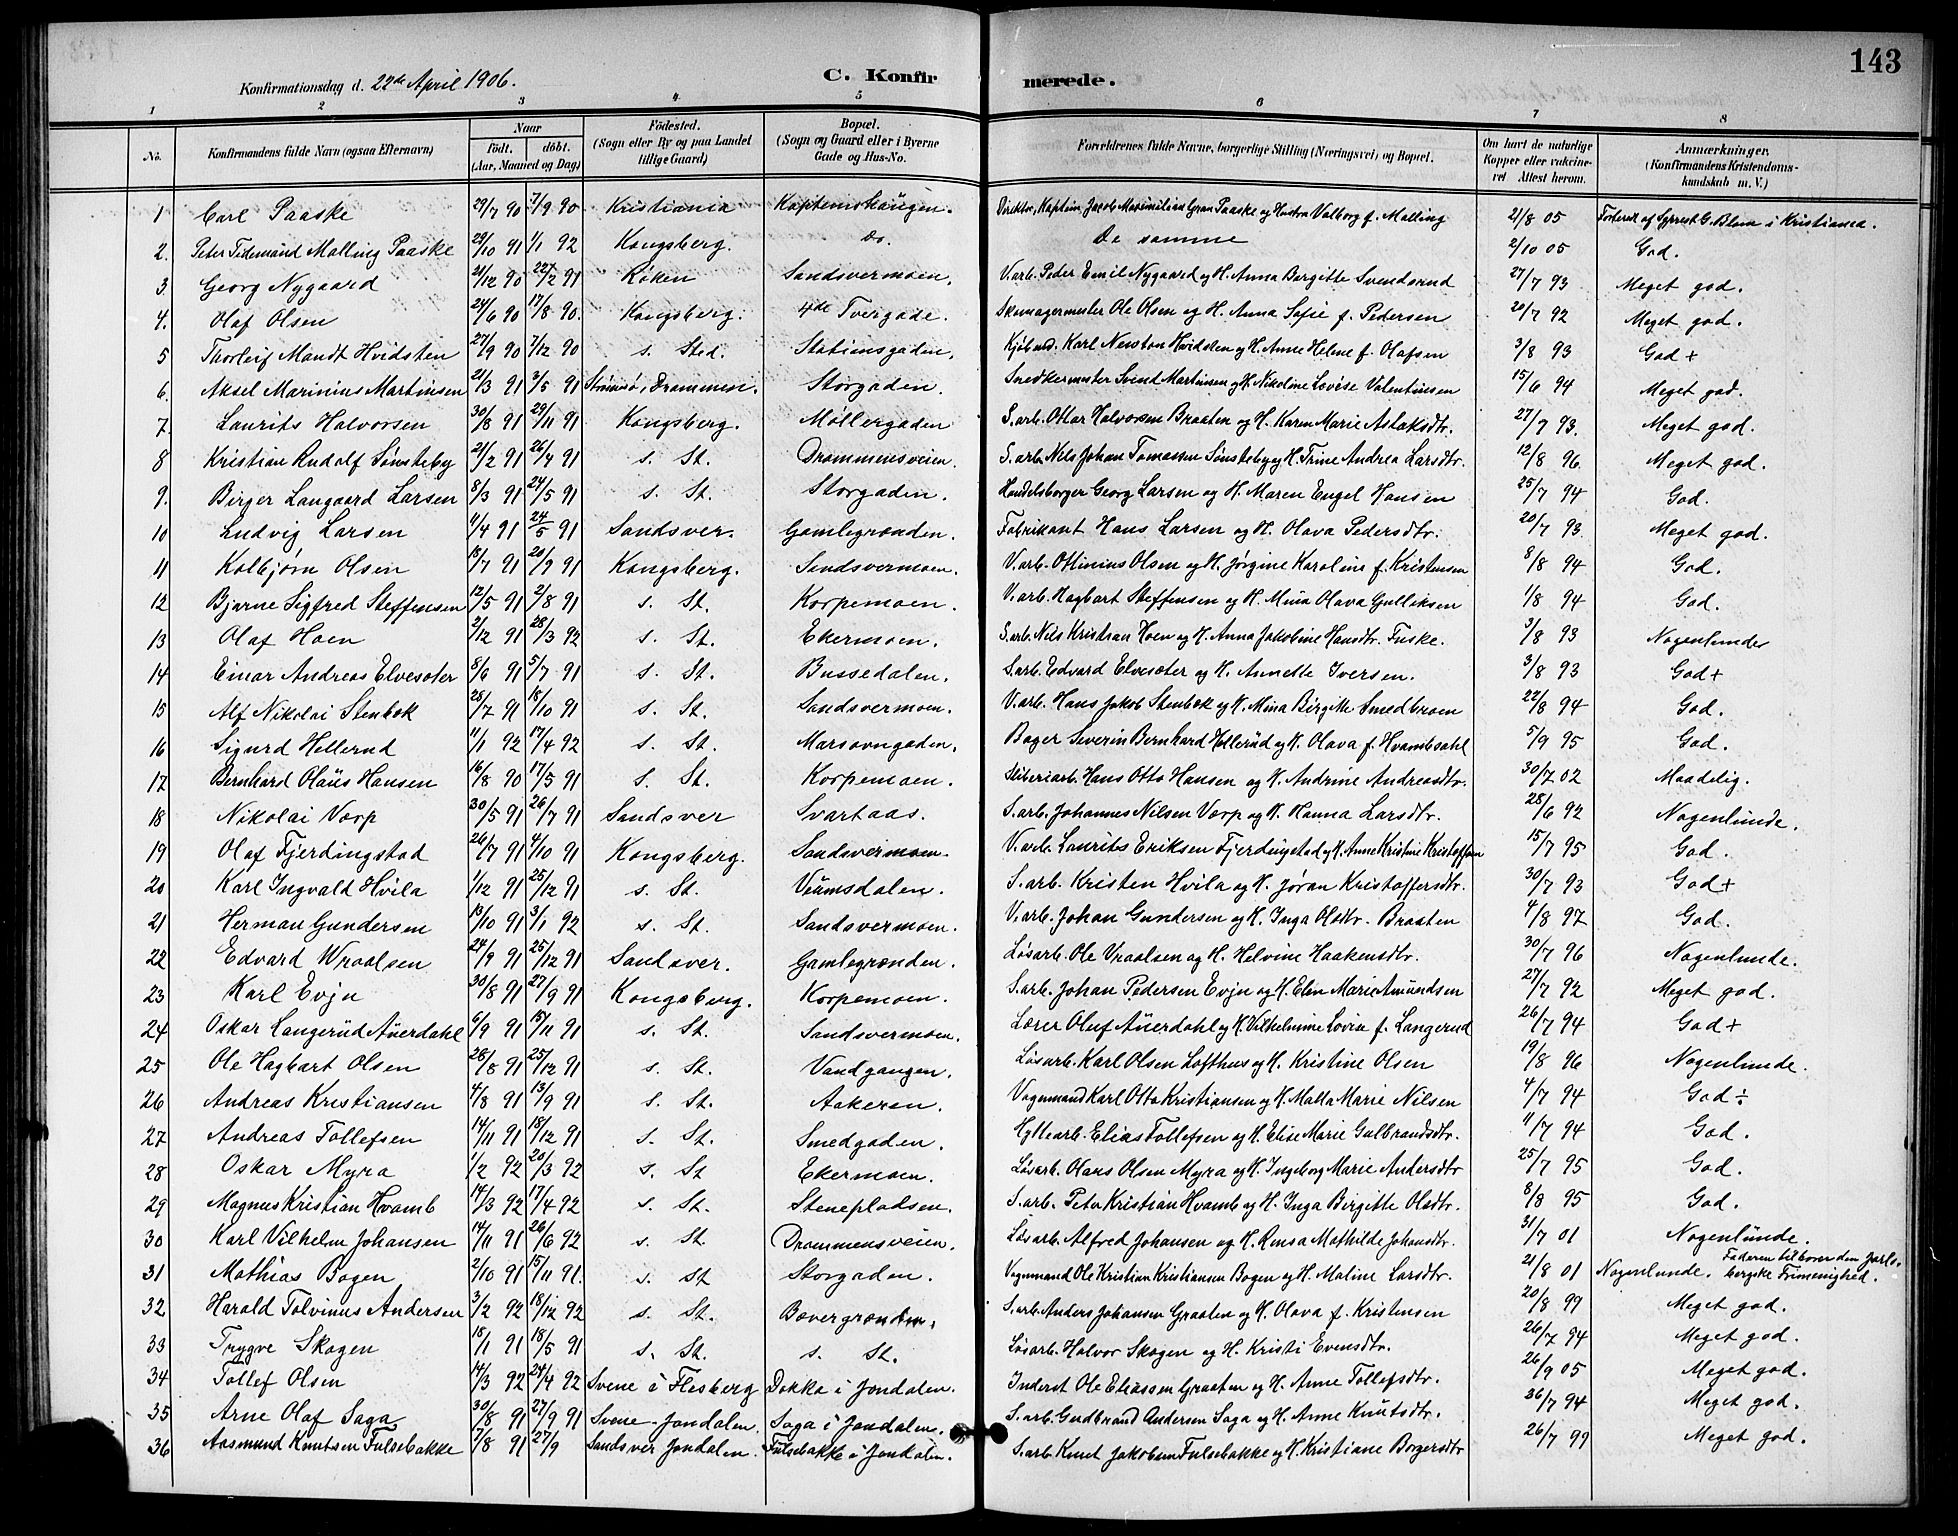 143
Konfirmationsdag d. 22de April 1906.
C. Konfir merede.
1 2 3 4 5 6 7 8
No. Konfirmandens fulde Navn (ogsaa Efternavn) Naar født. døbt. (Aar, Maaned og Dag) Fødested. (Sogn eller By og paa Landet tillige Gaard) Bopæl. (Sogn og Gaard eller i Byerne Gade og Hus-No. Forældrenes fulde Navne, borgerlige Stilling (Næringsvei) og Bopæl. Om havt de naturlige Kopper eller vakcineret Attest herom. Anmærkninger. (Konfirmandens Kristendomskundskab m. V.)
1 Carl Paaske 29/7 90 7/9 90 Kristiania Kaptemshaugen. Direktør, Kaptein Jacob Maximilian Gran Paaske og Hustru Valborg f. Malling 21/8 05 G. Blom i Kristiania.
2. Peter Tidemand Malling Paaske 29/10 91 1/1 92 Kongsberg. Do. De samme 2/10 05 God.
3. Georg Nygaard 21/12 90 22/2 91 Røken Sandsvermoen. V.arb. Peder Emil Nygaard og H. Anna Bergitte Svendsrud 27/7 93 Meget god.
4. Olaf Olsen 24/6 90 17/8 90. Kongsberg. 4de Tvergade. Skomagermester Ole Olsen og H. Anna Sofie f. Pedersen 20/7 92 Meget god.
5 Thorleif Mandt Hvidsten 27/9 90 7/12 90 s. Sted. Stationsgaden. Kjøbmd. Karl Newton Hvidsten og H. Anne Helene f. Olafsen 3/8 93 God +
6. Aksel Marinius Martinsen 21/3 91 3/5 91 Strømsø i Drammen. Storgaden. Snedkermester Svend Martinsen og H. Nikoline Lovise Valentinsen 15/6 94 Meget god.
7. Laurits Halvorsen 30/8 91 29/11 91 Kongsberg. Møllergaden S.arb. Ottar Halvorsen Braaten og H. Karen Marie Aslaksdtr. 27/7 93. Meget god.
8 Kristian Rudolf Sønsteby 21/2 91 26/4 91 s. St. Drammensveien. S.arb. Nils Johan Tomassen Sønsteby og H. Trine Andrea Larsdtr. 12/8 96. Meget god.
9. Birger Langaard Larsen 8/3 91 24/5 91 s. St. Storgaden. Handelsborger Georg Larsen og H. Maren Engel Hansen 25/7 94 God.
10 Ludvig Larsen 11/4 91 24/5 91 Sandsver. Gamlegrænden. Fabrikant Hans Larsen og H. Olava Pedersdtr. 20/7 93. Meget god.
11 Kolbjørn Olsen 18/7 91 20/9 91 Kongsberg. Sandsvermoen. V.arb. Ottinius Olsen og H. Jørgine Karoline f. Kristensen 8/8 94 God.
12 Bjarne Sigfred Steffensen 12/5 91 2/8 91 s. St. Korpemoen. V.arb. Hagbart Steffensen og H. Mina Olava Gulliksen 1/8 94 God.
13 Olaf Hoen 2/12 91 28/3 92 s. St. Ekermoen. S.arb. Nils Kristian Hoen og H. Anna Jakobine Hansdtr. Fuske. 3/8 93 Nogenlunde
14 Einar Andreas Elvesæter 8/6 91 5/7 91 s. St. Bussedalen. S.arb. Edvard Elvesæter og H. Annette Iversen. 3/8 93 God +
15 Alf Nikolai Stenbok 28/7 91 18/10 91 s. St. Sandsvermoen. V.arb. Hans Jakob Stenbok og H. Mina Birgitte Smedbroen 22/8 94 God.
16 Sigurd Hellerud 11/1 92 17/4 92 s. St. Masovngaden. Bager Severin Bernhard Hellerud og H. Olava f. Hvambsahl 5/9 95 God.
17 Bernhard Olaüs Hansen 16/8 90 17/5 91 s. St. Korpemoen. Sliberiarb. Hans Otto Hansen og H. Andrine Andreasdtr. 30/7 02 Maadelig.
18 Nikolai Værp 30/5 91 26/7 91 Sandsver Svartaas. S.arb. Johannes Nilsen Værp og H. Hanna Larsdtr. 28/6 92 Nogenlunde.
19 Olaf Fjerdingstad 26/7 91 4/10 91 Kongsberg. Sandsvermoen. V.arb. Laurits Eriksen Fjerdingstad og H. Anne Kristine Kristoffersen 15/7 95 God.
20 Karl Ingvald Hvila 1/12 91 25/12 91 s. St. Veumsdalen. S.arb. Kristen Hvila og H. Jøran Kristoffersdtr. 30/7 93 God +
21 Herman Gundersen 13/10 91 3/1 92 s. St. Sandsvermoen. V.arb. Johan Gundersen og H. Inga Olsdtr. Braaten 4/8 97 God.
22 Edvard Wraalsen 24/9 91 25/12 91 Sandsver. Gamlegrænden. Løsarb. Ole Vraalsen og H. Helvine Haakensdtr. 30/7 96 Nogenlunde.
23 Karl Evju 30/8 91 27/9 91 Kongsberg. Korpemoen. S.arb. Johan Pedersen Evju og H. Elen Marie Amundsen 27/7 92 Meget god.
24 Oskar Langerud Auerdahl 6/9 91 15/11 91 s. St. Sandsvermoen. Lærer Oluf Auerdahl og H. Vilhelmine Lovise f. Langerud 26/7 94 God +
25 Ole Hagbart Olsen 28/8 91 25/12 91 s. St. Vandgangen. Løsarb. Karl Olsen Lofthus og H. Kristine Olsen 19/8 96 Nogenlunde.
26 Andreas Kristiansen 4/8 91 13/9 91 s. St. Aakeren. Vognmand Karl Otto Kristiansen og H. Malla Marie Nilsen 4/7 94 God ÷
27 Andreas Tollefsen 14/11 91 18/12 91 s. St. Smedgaden. Hyttearb. Elias Tollefsen og H. Elise Marie Gulbrandsdtr. 11/7 94 God.
28 Oskar Myra 1/2 92 20/3 92 s. St Ekermoen. Løsarb. Hans Olsen Myra og H. Ingeborg Marie Andersdtr 25/7 95 God.
29 Magnus Kristian Hvamb 14/3 92 17/4 92 s. St. Stenepladsen. S.arb. Peter Kristian Hvamb og H. Inga Birgitte Olsdtr. 8/8 95 God.
30 Karl Vilhelm Johansen 14/11 91 26/6 92 s. St. Drammensveien. Løsarb. Alfred Johansen og H. Mathilde Johansdtr. 31/7 01 Nogenlunde.
31 Mathias Bogen 2/10 91 15/11 91. s. St Storgaden. Vognmand Ole Kristian Kristiansen Bogen og H. Maline Larsdtr. 21/8 01 Nogenlunde. Faderen tilhører den Jarlsbergske Frimenighed.
32 Harald Tolvinus Andersen 3/2 92 18/12 92 s. St. Bævergrænden. S.arb. Anders Johansen Graaten og H. Olava f. Kristensen 20/8 99 Meget god.
33 Trygve Skogen 18/1 91 18/5 91 s. St. s. St. Løsarb. Halvor Skogen og H. Kristi Evensdtr. 26/7 94 Meget god.
34 Tollef Olsen 14/3 92 24/4 92 Svene i Flesberg Dokka i Jondalen. Inderst Ole Eliassen Graaten og H. Anne Tollefsdtr. 26/9 05 Meget god.
35 Arne Olaf Saga 30/8 91 27/9 91 Svene - Jondalen. Saga i Jondalen. S.arb. Gudbrand Andersen Saga og H. Anne Knutsdtr. 26/7 94 Meget god.
36 Aasmund Knutsen Fulsebakke 7/8 91 27/9 Sandsver Jondalen. Fulsebakke i Jondalen. S.arb. Knut Jakobsen Fulsebakke og H. Kristiane Borgersdtr 26/7 99 Meget god.